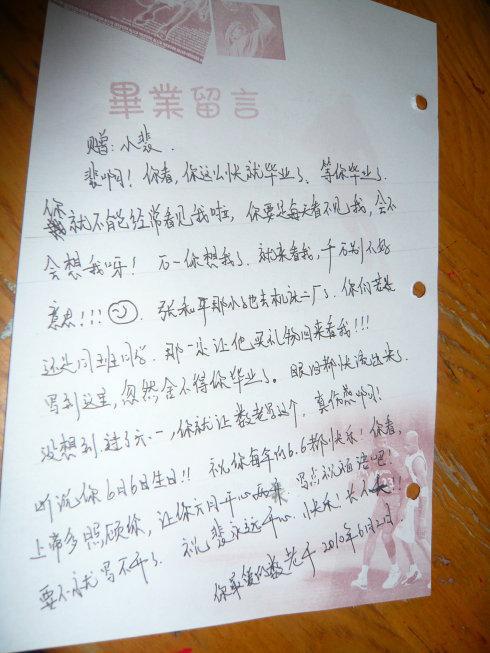 畢業留言
赠:小裴.
裴啊!你看,你这么快就毕业了、等你毕业了.
你就不能经常看见我啦,你要是每天看不见我,会不
会想我呀!万一你想我了.就来看我,千万别不好
意思!!!张和平那小子也去机床二厂了.你们若是
还是同班同学.那一定让他买礼物回来看我!!!
写到这里,忽然舍不得你毕业了。眼泪都快流出来了.
没想到.过了六.一,你就让数老写这个.真伤感啊!
听说你6月6日生日!!祝你每年的6.6都快乐!你看,
上帝多照顾你,让你六月开心两.写点祝福语吧!
要不就写不开了.祝裴永远开心、快乐.长不大!!
你最的数老于2010年6月2日.